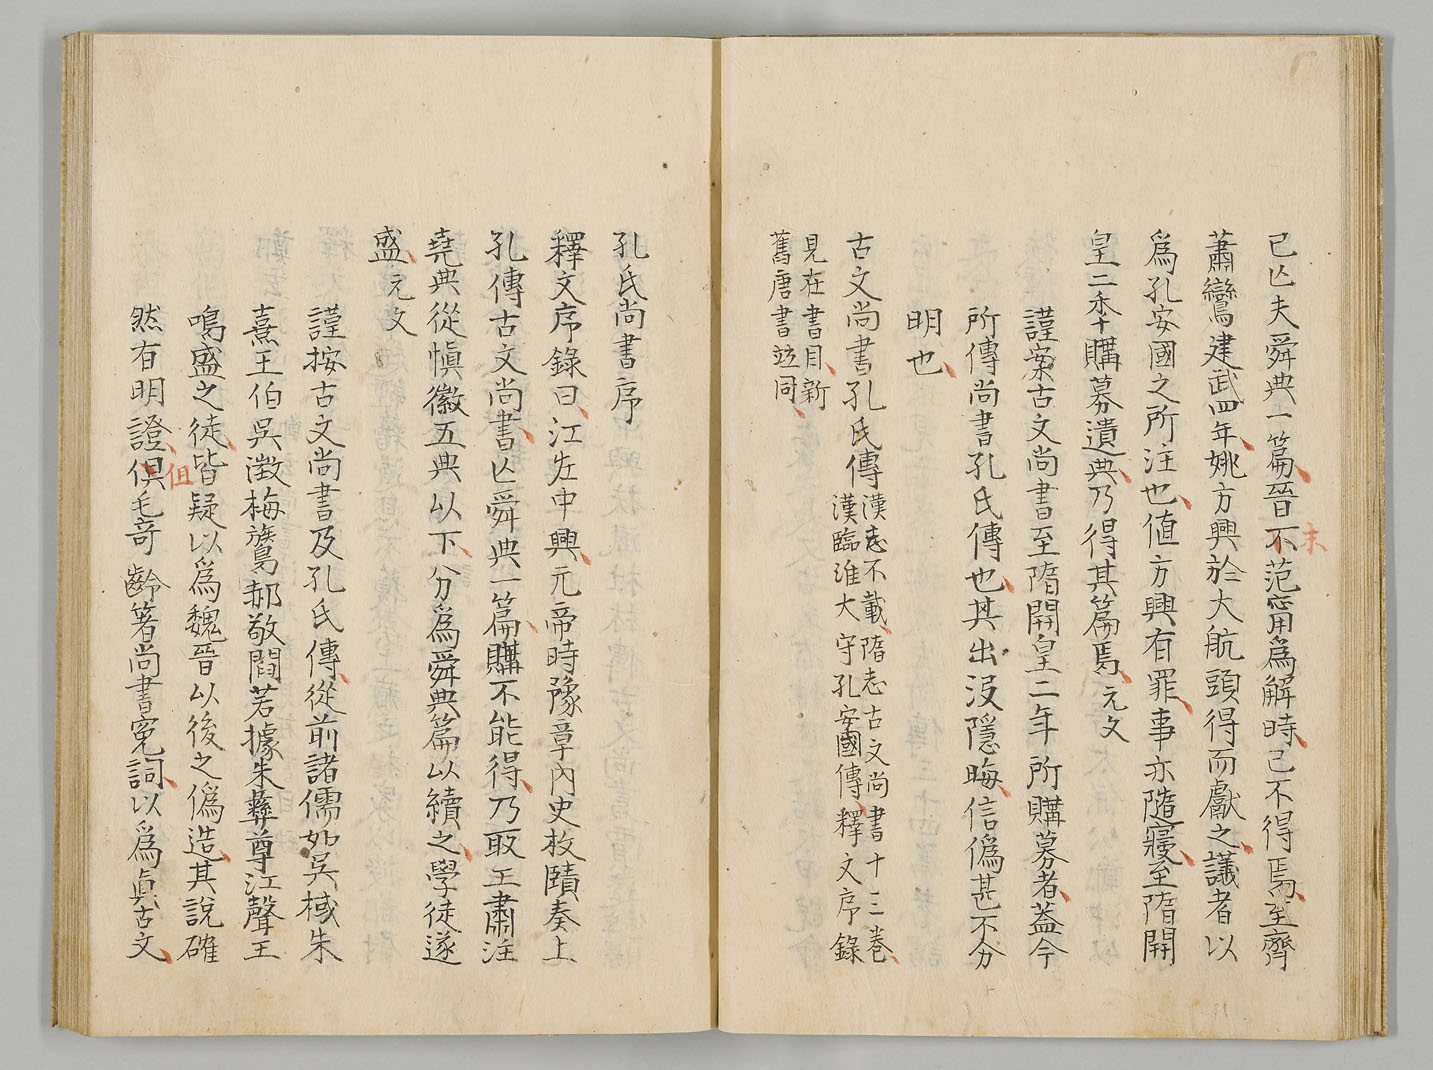 已亾夫舜典一篇晉不范甯爲解時已不得焉至齊
末
蕭鸞建武四年姚方興於大航頭得而獻之議者以
爲孔安國之所注也値方興有罪事亦隨寢至隋開
皇二年購募遺典乃得其篇焉元文
謹案古文尚書至隋開皇二年所購募者蓋今
所傳尚書孔氏傳也其出没隱晦信僞甚不分
明也
古文尚書孔氏傳
漢志不載隋志古文尚書十三卷
漢臨淮太守孔安國傳釋文序錄
見在書目新
舊唐書竝同
孔氏尚書序
釋文序錄曰江左中興元帝時豫章內史枚賾奏上
孔傳古文尚書亾舜典一篇購不能得乃取王肅注
堯典從愼徽五典以下分爲舜典篇以續之學徒遂
盛元文
謹按古文尚書及孔氏傳從前諸儒如吳棫朱
熹王伯吳澂梅鷟郝敬閻若據朱彝尊江聲王
鳴盛之徒皆疑以爲魏晉以後之僞造其說確
然有明證俱毛奇齡著尚書寃詞以爲眞古文
但